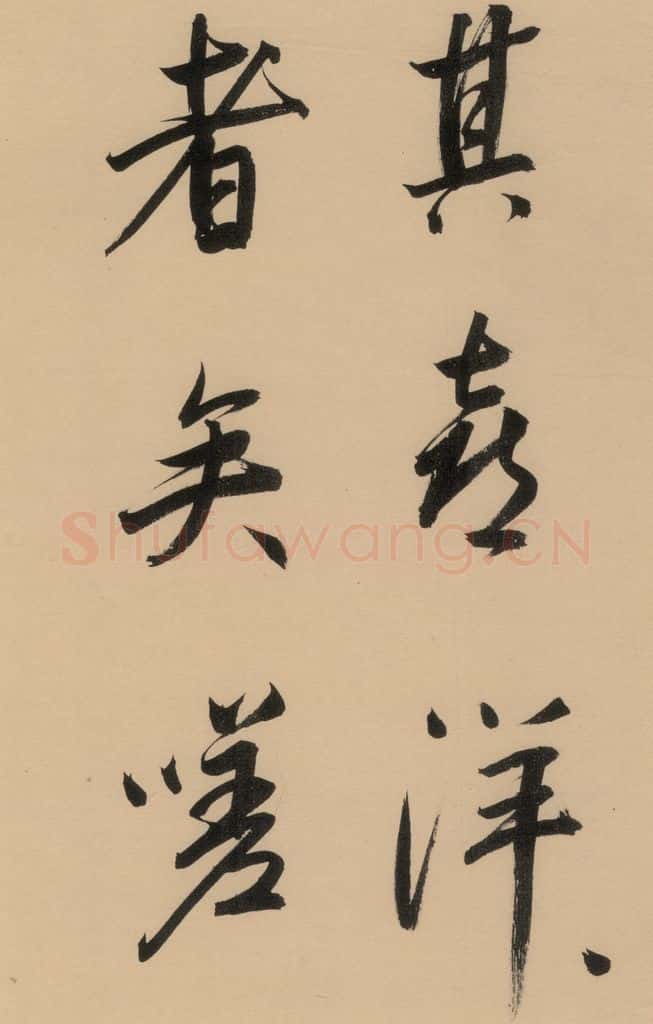 其喜洋、
者矣嗟
Shufawang.CN